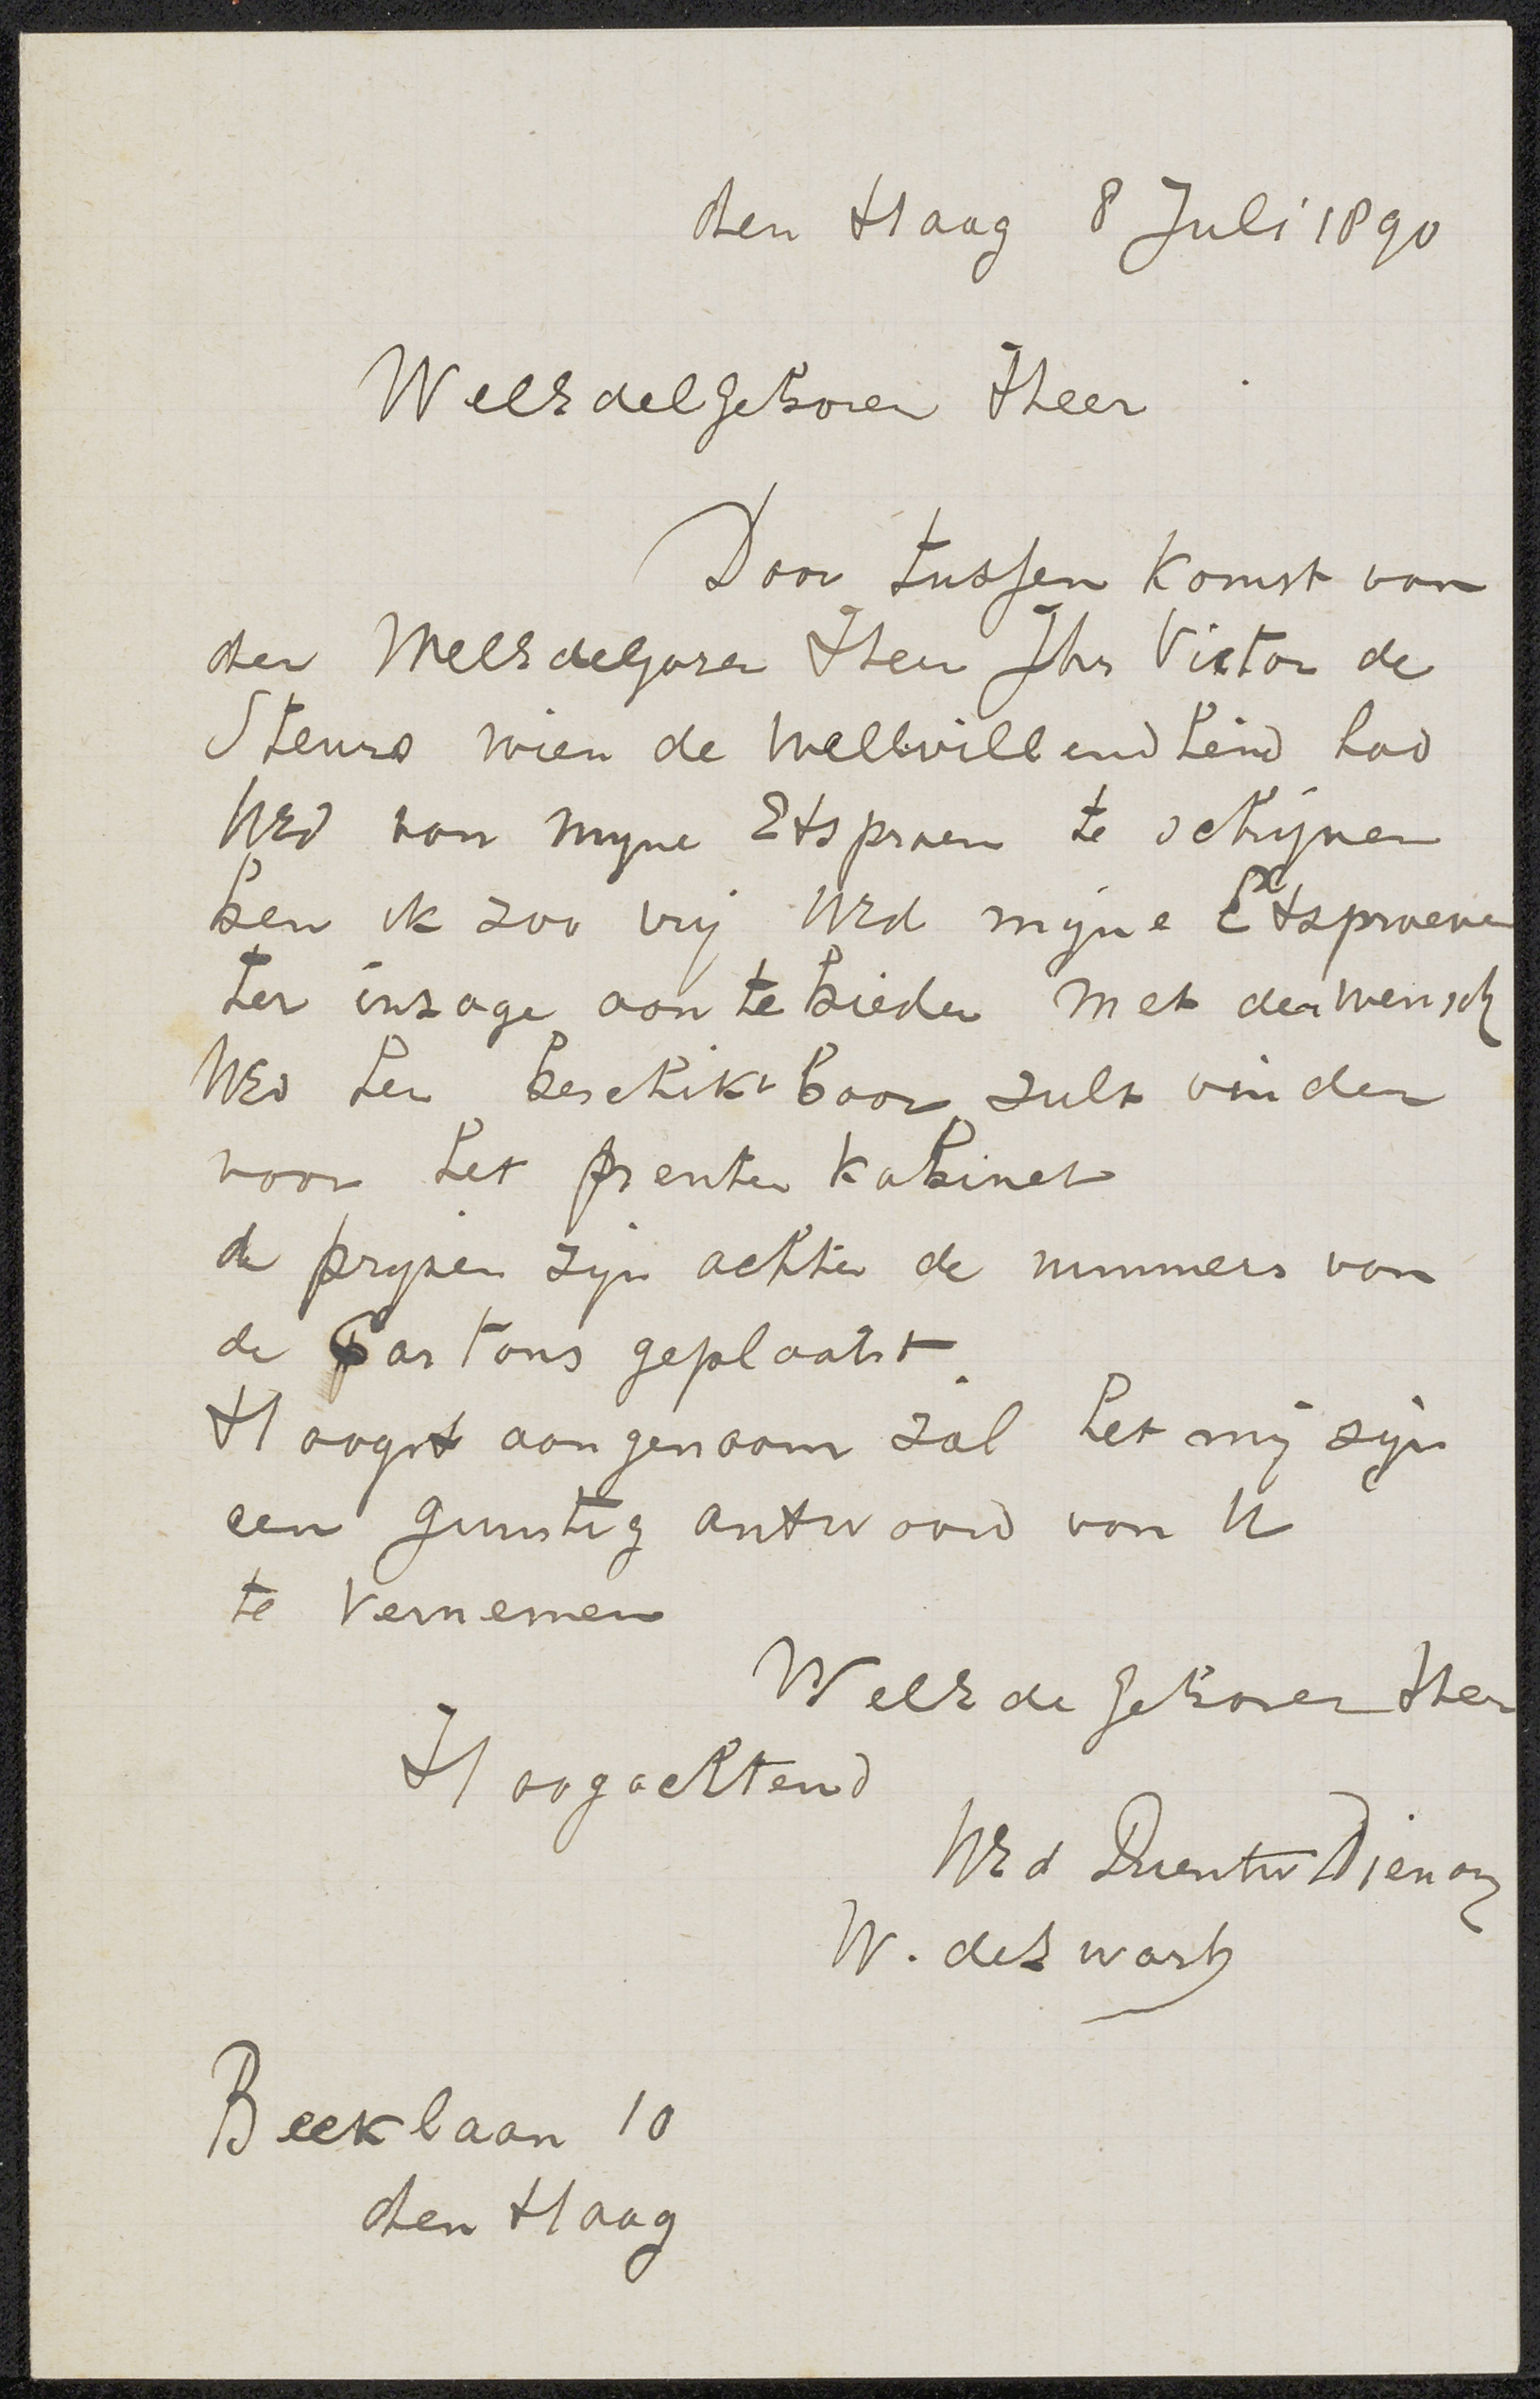 den Haag 8 Juli 1890
WelEdelgeboren Heer
Door tussen komst van
den WelEdelgoren Heer Jhr Victor de
Steurs wien de Welwillendheid had
UEd van myne Etsproen te schrijven
ben ik zoo vrij UEd mijne Etsproeven
ter inzage aan te bieden met den wensch
UEd hen beschikt baar zult vinden
voor het prenten kabinet
de pryzen zijn achter de nummers van
de Cartons geplaatst
Hoogst aangenaam zal het mij zijn
een gunstig antwoord van U
te vernemen
WelEdegeboren Heer
Hoogachtend
UEd Dienaar
W. de Zwart
Beeklaan 10
den Haag